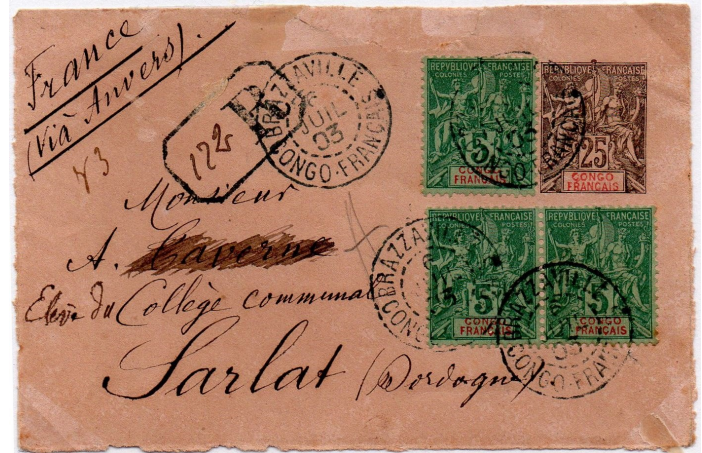 France
(Viâ Anvers).
R
122
BRAZZAVILLE
6
JUIL
03
CONGO-FRANÇAIS
REPVBLIQVE FRANÇAISE
COLONIES POSTES
5
CONGO
FRANÇAIS
REPVBLIQVE FRANÇAISE
COLONIES POSTES
25
CONGO
FRANÇAIS
Monsieur
A.
Elève du Collège communal
Sarlat (Dordogne)
BRAZZAVILLE
CONGO
REPVBLIQVE FRANÇAISE
COLONIES POSTES
5
CONGO
FRANÇAIS
REPVBLIQVE FRANÇAISE
COLONIES POSTES
5
CONGO
FRANÇAIS
BRAZZAVILLE
03
CONGO-FRANÇAIS